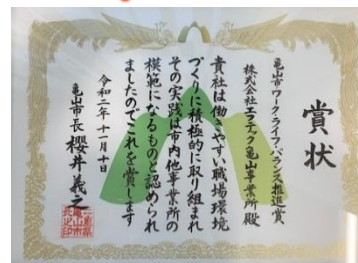 賞状
亀山市ワーク・ライフ・バランス推進賞
株式会社エフテック亀山事業所殿
貴社は働きやすい職場環境
づくりに積極的に取り組まれ
その実践は市内他事業所の
模範になるものと認められ
ましたのでこれを賞します
令和二年十一月十日
亀山市長 櫻井義之